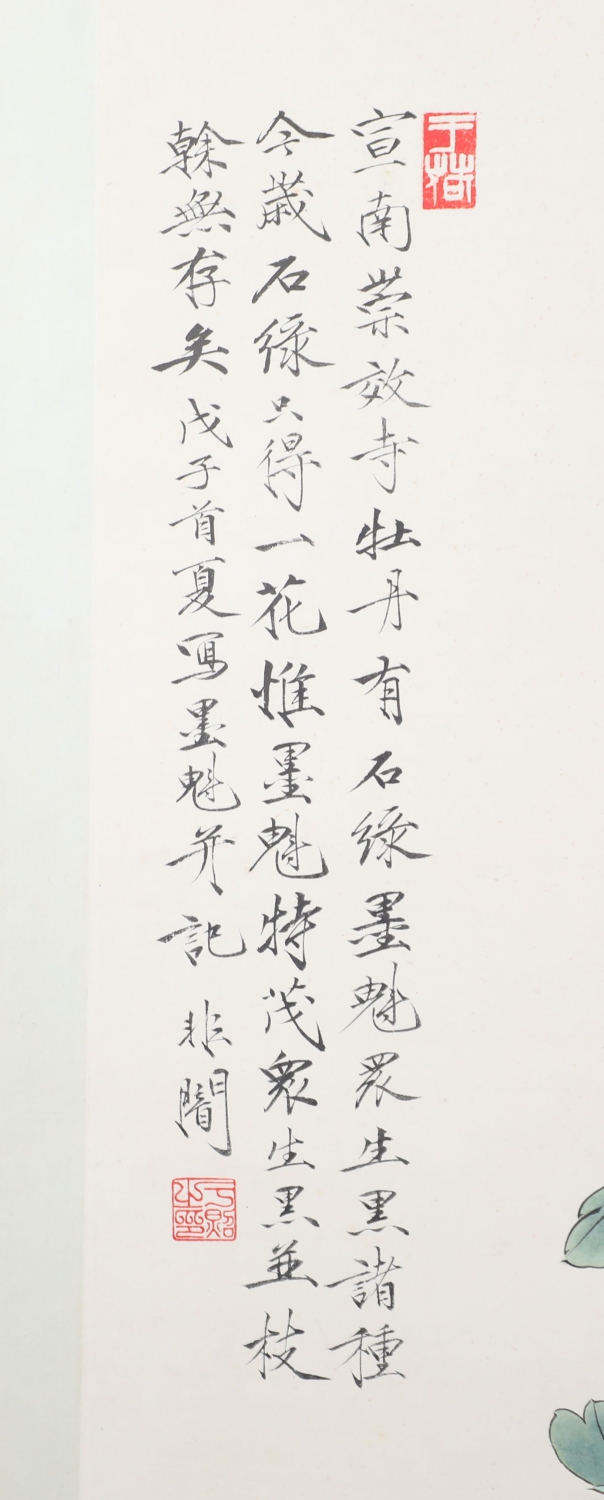 宣南崇效寺牡丹有石綠墨魁眾生黑諸種
今歲石綠只得一花惟墨魁特茂眾生黑並枝
榦無存矣戊子首夏寫墨魁并記 非闇